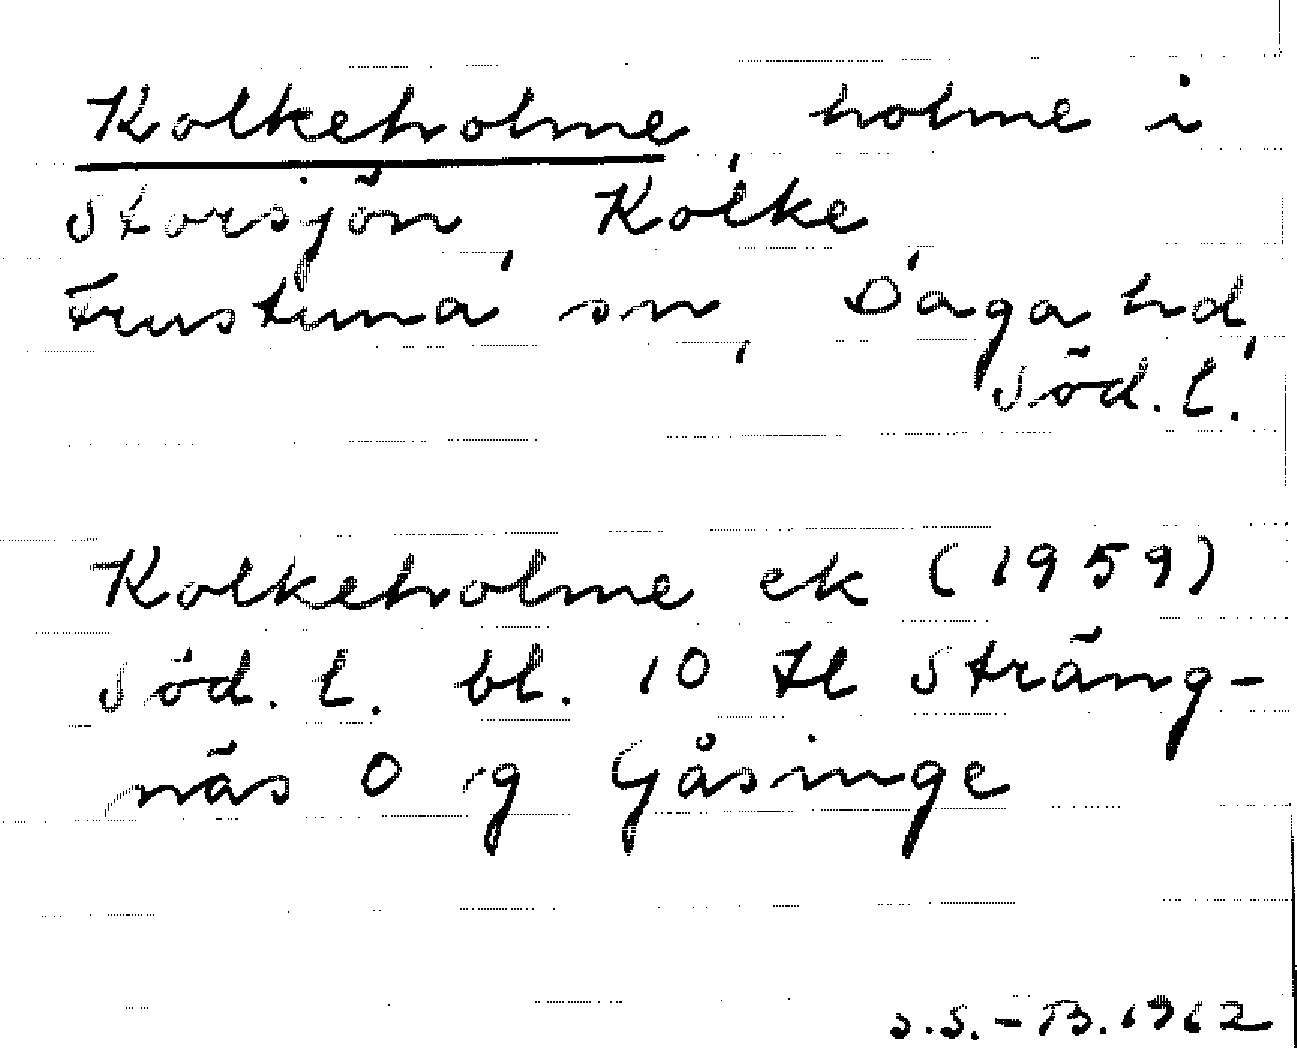 Kolkeholme, holme i
Storsjön, Kolke,
Frustuna sn, Daga hd,
Söd. l.
Kolkeholme ek (1959)
Söd. l. bl. 10 tl Sträng-
näs O g Gåsinge
S.S.-B. 1962